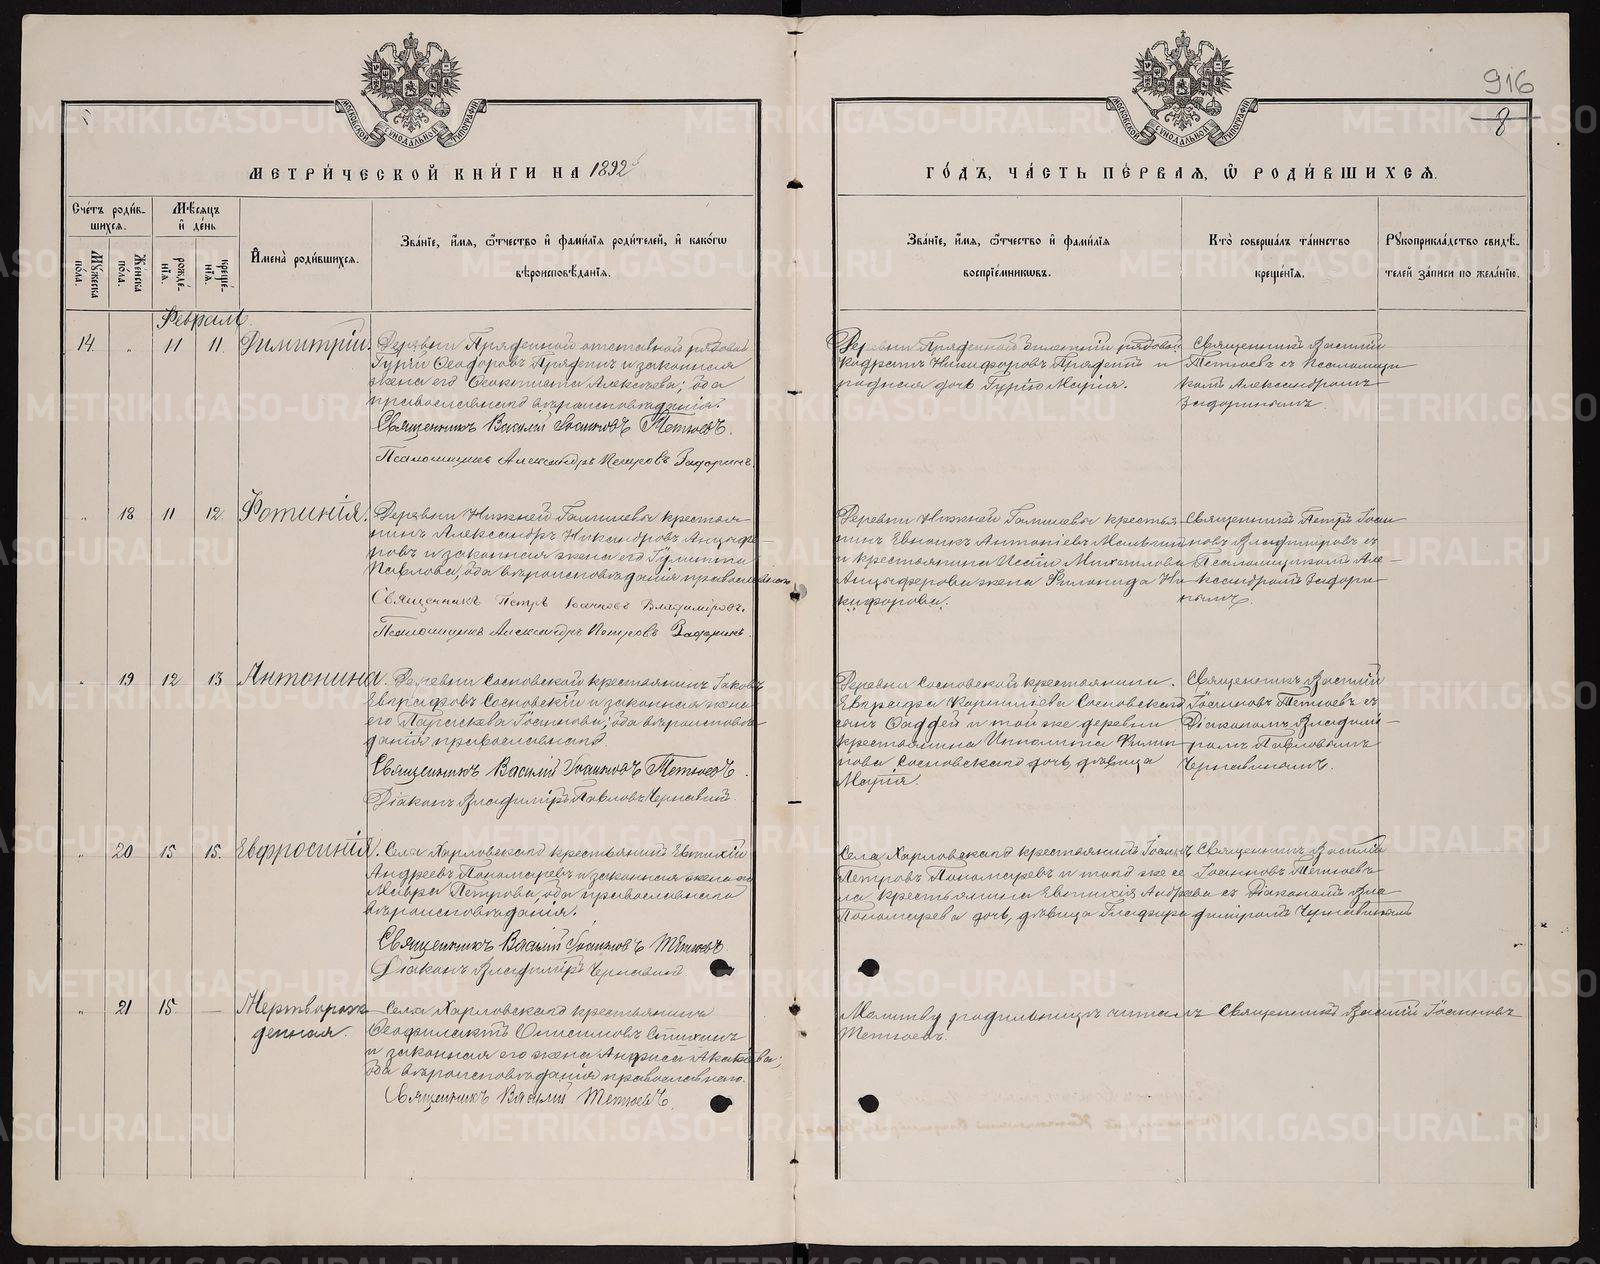 916
8
МЕТРИ́ЧЕСКОЙ КНИ́ГИ НА 1892
ГО́ДЪ, ЧА́СТЬ ПЕ́РВАЯ, Ѿ РОДИ́ВШИХСЯ.
Сче́тъ роди́в-
шихся.
Мѣсяцъ
и де́нь
Мужеска пола.
Женска пола.
рожде́нїя.
креще́нїя.
Имена̀ роди́вшихся.
Зва́нїе, и́мя, ѻ́тчество и фами́лїя роди́телей, и како́гѡ
вѣроисповѣ́данїя.
Зва́нїе, и́мя, ѻ́тчество и фами́лїя
воспрїе́мникѡвъ.
Кто̀ соверша́лъ та́инство
креще́нїя.
Рꙋкоприкла́дство свидѣ́-
телей за́писи по жела́нїю.
Февраль
14 " 11 11. Димитрій.
Деревни Пряденной отставной рядовой
Гурій Ѳеодоровъ Пряденъ и законная
жена его Ѳеоктиста Алексѣева; оба
православнаго вѣроисповѣданія.
Священникъ Василій Іоанновъ Тетюевъ.
Псаломщикъ Александръ Петровъ Задоринъ.
Деревни Пряденной билетній рядовой
Кодратъ Никифоровъ Пряденъ и
родная дочь Гурія Марія.
Священникъ Василій
Тетюевъ съ Псаломщи
комъ Александромъ
Задоринымъ
" 18 11 12. Фотинія.
Деревни Нижней Гамшевой крестья
нинъ Александръ Никандровъ Анцыфе
ровъ и законная жена его Іулитта
Павлова, оба вѣроисповѣданія православнаго
Священникъ Петръ Іоанновъ Владиміровъ.
Псаломщикъ Александръ Петровъ Задоринъ.
Деревни Нижней Гамшевой крестья
нинъ Антоніевъ
и крестьянина Исаіи Михайлова
Анцыферова жена Ни-
кифорова.
Священникъ Петръ Іоан
новъ Владиміровъ съ
Псаломщикомъ Але-
ксандромъ Задори-
нымъ.
" 19 12 13 Антонина.
Деревни Сосновской крестьянинъ Іаковъ
Евграфовъ Сосновскій и законная жена
его Параскева Іоаннова; оба вѣроисповѣ-
данія православнаго
Священникъ Василій Іоанновъ Тетюевъ.
Діаконъ Владиміръ Павловъ Чернавинъ.
Деревни Сосновской крестьянина
Евграфа Корниліева Сосновскаго
сынъ Ѳаддей и той же деревни
крестьянина Ипполита Филип
пова Сосновскаго дочь, дѣвица
Марія.
Священникъ Василій
Іоанновъ Тетюевъ съ
Діакономъ Владими-
ромъ Павловымъ
Чернавинымъ.
" 20 15 15. Евфросинія.
Села Харловскаго крестьянинъ Евтихій
Андреевъ Пономаревъ и законная жена его
Мавра Петрова, оба православнаго
вѣроисповѣданія.
Священникъ Василій Іоанновъ Тетюевъ
Діаконъ Владиміръ Чернавинъ
Села Харловскаго крестьянинъ Іоаннъ
Петровъ Пономаревъ и того же се
ла крестьянина Евтихія Андреева
Пономарева дочь, дѣвица Глафира
Священникъ Василій
Іоанновъ Тетюевъ
съ Діакономъ Вла
диміромъ Чернавинымъ
" 21 15. — Мертворож
денная.
Села Харловскаго крестьянинъ
Ѳеофилактъ Онисимовъ Стихинъ
и законная его жена Анфиса Акакіева;
оба вѣроисповѣданія православнаго.
Священникъ Василій Тетюевъ.
Молитву родильницѣ читалъ Священникъ Василій Іоанновъ
Тетюевъ.
METRIKI.GASO-URAL.RU